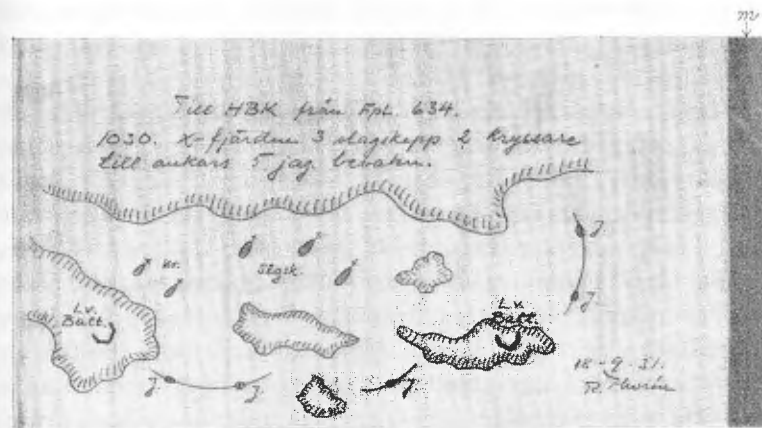 m
Till HBK från Fpl. 634.
1030. X-fjärden 3 slagskepp 2 Kryssare
till ankars 5 jag bevakn.
J.
Kr.
Slgsk.
J.
L.v.
Batt.
L.v.
Batt.
J.
J.
J.
18-9-31.